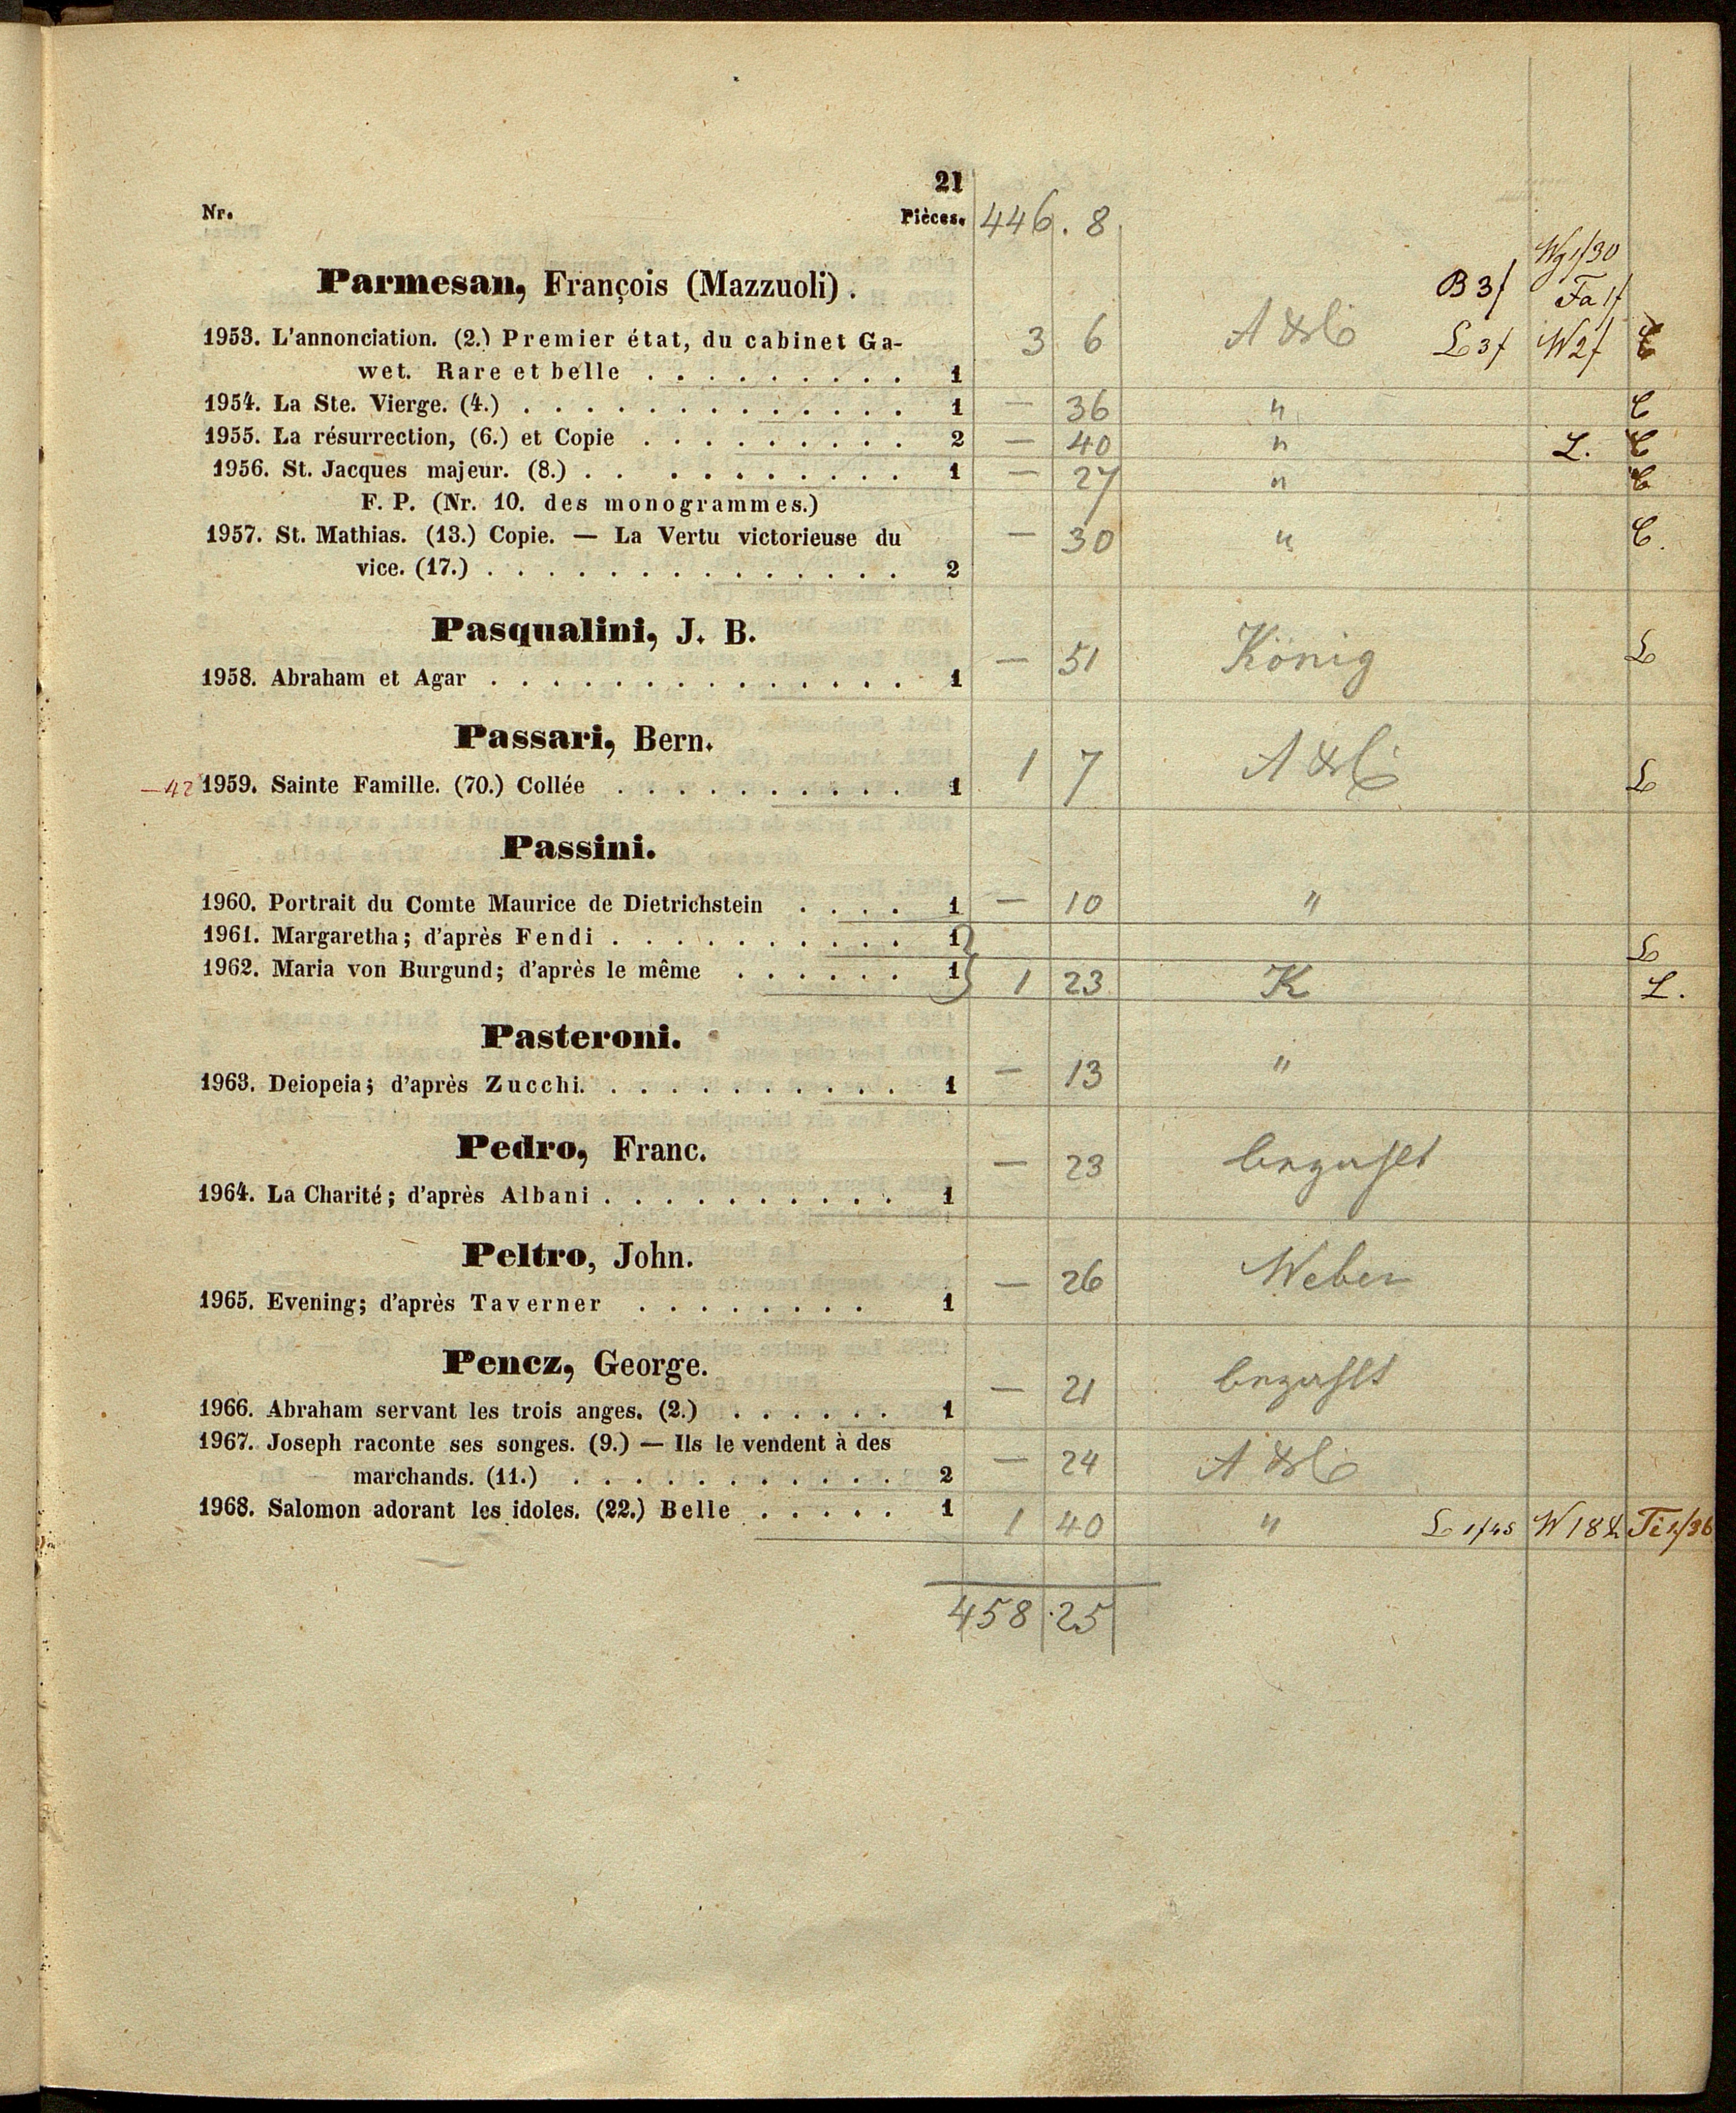 21
Nr. Pièces. 446. 8.
Wg 1/30
Parmesan, François (Mazzuoli). B 3f Fa 1f
1953. L'annonciation. (2.) Premier état, du cabinet Ga- 3 6 L 3f W 2f
wet. Rare et belle . . . . . . . . . 1
1954. La Ste. Vierge. (4.) . . . . . . . . . . . . . 1 — 36 "
1955. La résurrection, (6.) et Copie . . . . . . . . . 2 — 40 " L.
1956. St. Jacques majeur. (8.) . . . . . . . . . . 1 — 27 "
F. P. (Nr. 10. des monogrammes.)
1957. St. Mathias. (13.) Copie. — La Vertu victorieuse du — 30 "
vice. (17.) . . . . . . . . . . . . . . 2
Pasqualini, J. B.
1958. Abraham et Agar . . . . . . . . . . . . . . 1 — 51 König L
Passari, Bern.
—42 1959. Sainte Famille. (70.) Collée . . . . . . . . . . 1 1 7 L
Passini.
1960. Portrait du Comte Maurice de Dietrichstein . . . . 1 — 10 "
1961. Margaretha; d'après Fendi . . . . . . . . . . 1 L
1962. Maria von Burgund; d'après le même . . . . . . 1 } 1 23 K L.
Pasteroni.
1963. Deiopeia; d'après Zucchi. . . . . . . . . . . 1 — 13 "
Pedro, Franc.
1964. La Charité; d'après Albani . . . . . . . . . . 1 — 23 bezahlt
Peltro, John.
1965. Evening; d'après Taverner . . . . . . . . 1 — 26 Weber
Pencz, George.
1966. Abraham servant les trois anges. (2.) . . . . . . 1 — 21 bezahlt
1967. Joseph raconte ses songes. (9.) — Ils le vendent à des — 24
marchands. (11.) . . . . . . . . . . . 2
1968. Salomon adorant les idoles. (22.) Belle . . . . . 1 1 40 " L 1f45
458.25